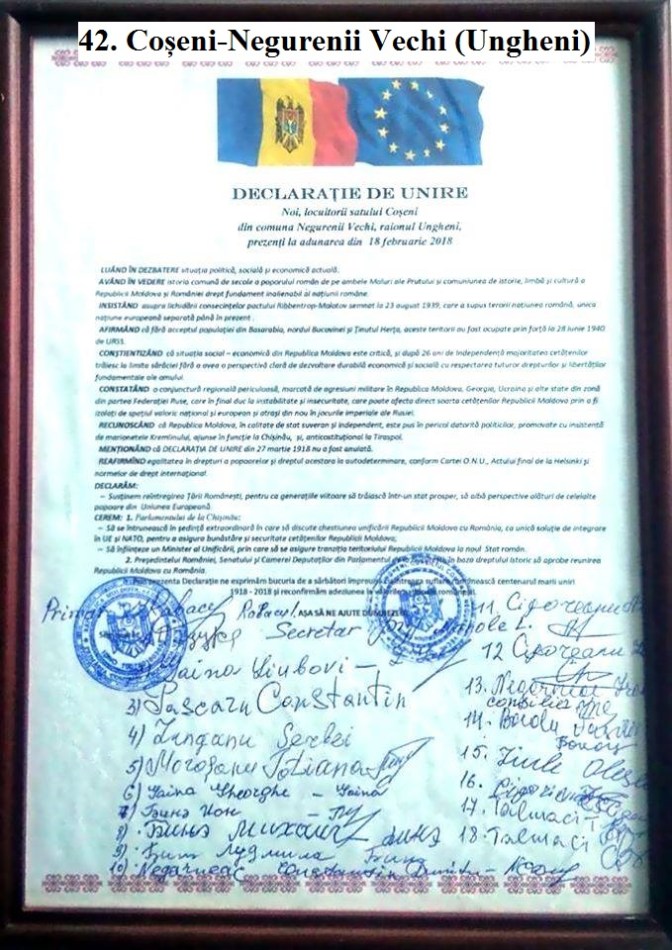 42. Coșeni-Negurenii Vechi (Ungheni)
DECLARAȚIE DE UNIRE
Noi, locuitorii satului Coșeni
din comuna Negurenii Vechi, raionul Ungheni,
prezenți la adunarea din 18 februarie 2018
LUÂND ÎN DEZBATERE situația politică, socială și economică actuală.
AVÂND ÎN VEDERE istoria comună de secole a poporului român de pe ambele Maluri ale Prutului și comuniunea de istorie, limbă și cultură a
Republicii Moldova și României drept fundament inalienabil al națiunii române.
INSISTÂND asupra lichidării consecințelor pactului Ribbentrop-Molotov semnat la 23 august 1939, care a supus terorii națiunea română, unica
națiune europeană separată până în prezent.
AFIRMÂND că fără acceptul populației din Basarabia, nordul Bucovinei și Ținutul Herța, aceste teritorii au fost ocupate prin forță la 28 iunie 1940
de URSS.
CONȘTIENTIZÂND că situația social – economică din Republica Moldova este critică, și după 26 ani de Independență majoritatea cetățenilor
trăiesc la limita sărăciei fără a avea o perspectivă clară de dezvoltare durabilă economică și socială cu respectarea tuturor drepturilor și libertăților
fundamentale ale omului.
CONSTATÂND o conjunctură regională periculoasă, marcată de agresiuni militare în Republica Moldova, Georgia, Ucraina și alte state din zonă
din partea Federației Ruse, care în final duc la instabilitate și insecuritate, care poate afecta direct soarta cetățenilor Republicii Moldova prin a fi
izolați de spațiul valoric național și european și atrași din nou în jocurile imperiale ale Rusiei.
RECUNOSCÂND că Republica Moldova, în calitate de stat suveran și independent, este pus în pericol datorită politicilor, promovate cu insistență
de marionetele Kremlinului, ajunse în funcție la Chișinău, și, anticostituțional la Tiraspol.
MENȚIONÂND că DECLARAȚIA DE UNIRE din 27 martie 1918 nu a fost anulată.
REAFIRMÎND egalitatea în drepturi a popoarelor și dreptul acestora la autodeterminare, conform Cartei O.N.U., Actului final de la Helsinki și
normelor de drept internațional.
DECLARĂM:
– Susținem reîntregirea Țării Românești, pentru ca generațiile viitoare să trăiască într-un stat prosper, să aibă perspective alături de celelalte
popoare din Uniunea Europeană.
CEREM: 1. Parlamentului de la Chișinău:
– Să se întrunească în ședință extraordinară în care să discute chestiunea unificării Republicii Moldova cu România, ca unică soluție de integrare
în UE și NATO, pentru a asigura bunăstare și securitate cetățenilor Republicii Moldova;
– Să înființeze un Minister al Unificării, prin care să se asigure tranziția teritoriului Republicii Moldova la noul Stat român.
2. Președintelui României, Senatului și Camerei Deputaților din Parlamentul în baza dreptului istoric să aprobe reunirea
Republicii Moldova cu România.
prezenta Declarație ne exprimăm bucuria de a sărbători împreună suflare românească centenarul marii uniri
1918 - 2018 și reconfirmăm adeziunea
AȘA SĂ NE AJUTE
Secretar
3) Pascaru Constantin
4) Zinganu Serghei
5) Moroșanu Tatiana
6) Șaina Gheorghe – Șaina
7) Бынэ Ион
8) Бинэ Михаил
9) Людмила
10) Negarneac Constantin Dumitru
11. Cigoreanu
12 Cigoreanu
13.
consilier
14.
15.
16.
17. Talmaci T
18. Talmaci